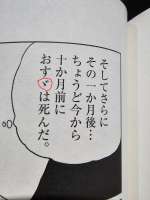 そしてさらに
その一か月後…
ちょうど今から
十か月前に
おすゞは死んだ。